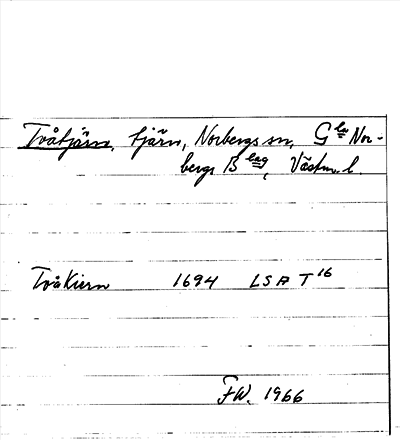 Tvåtjärn, tjärn, Norbergs sn, Gla Nor-
bergs Blag, Västm. l.
Tvåkiern 1694 LSA T16
FW. 1966